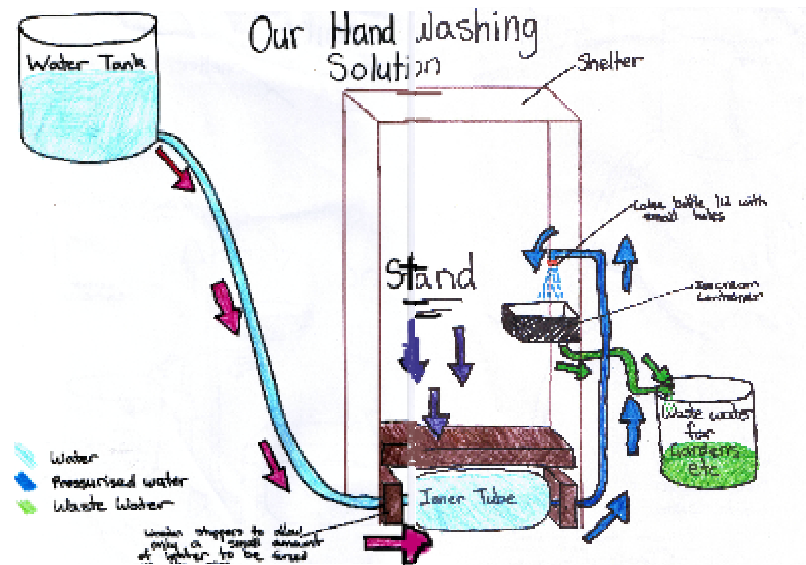 Our Hand Washing
Solution
Water Tank
Shelter
Coke bottle lid with
small holes
Stand
Icecream
container
Waste water
for
Gardens
etc
Water
Pressurised water
Waste Water
Inner Tube
Wooden stoppers to allow
only a small amount
of water to be forced